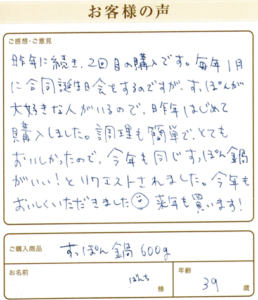 お客様の声
ご感想・ご意見
昨年に続き、2回目の購入です。毎年1月
に合同誕生日会をするのですが、すっぽんが
大好きな人がいるので、昨年はじめて
購入しました。調理も簡単で、とても
おいしかったので、今年も同じすっぽん鍋
がいい!とリクエストされました。今年も
おいしくいただきました 来年も買います!
ご購入商品
すっぽん鍋 600g
お名前
ぱんち 様
年齢
39 歳